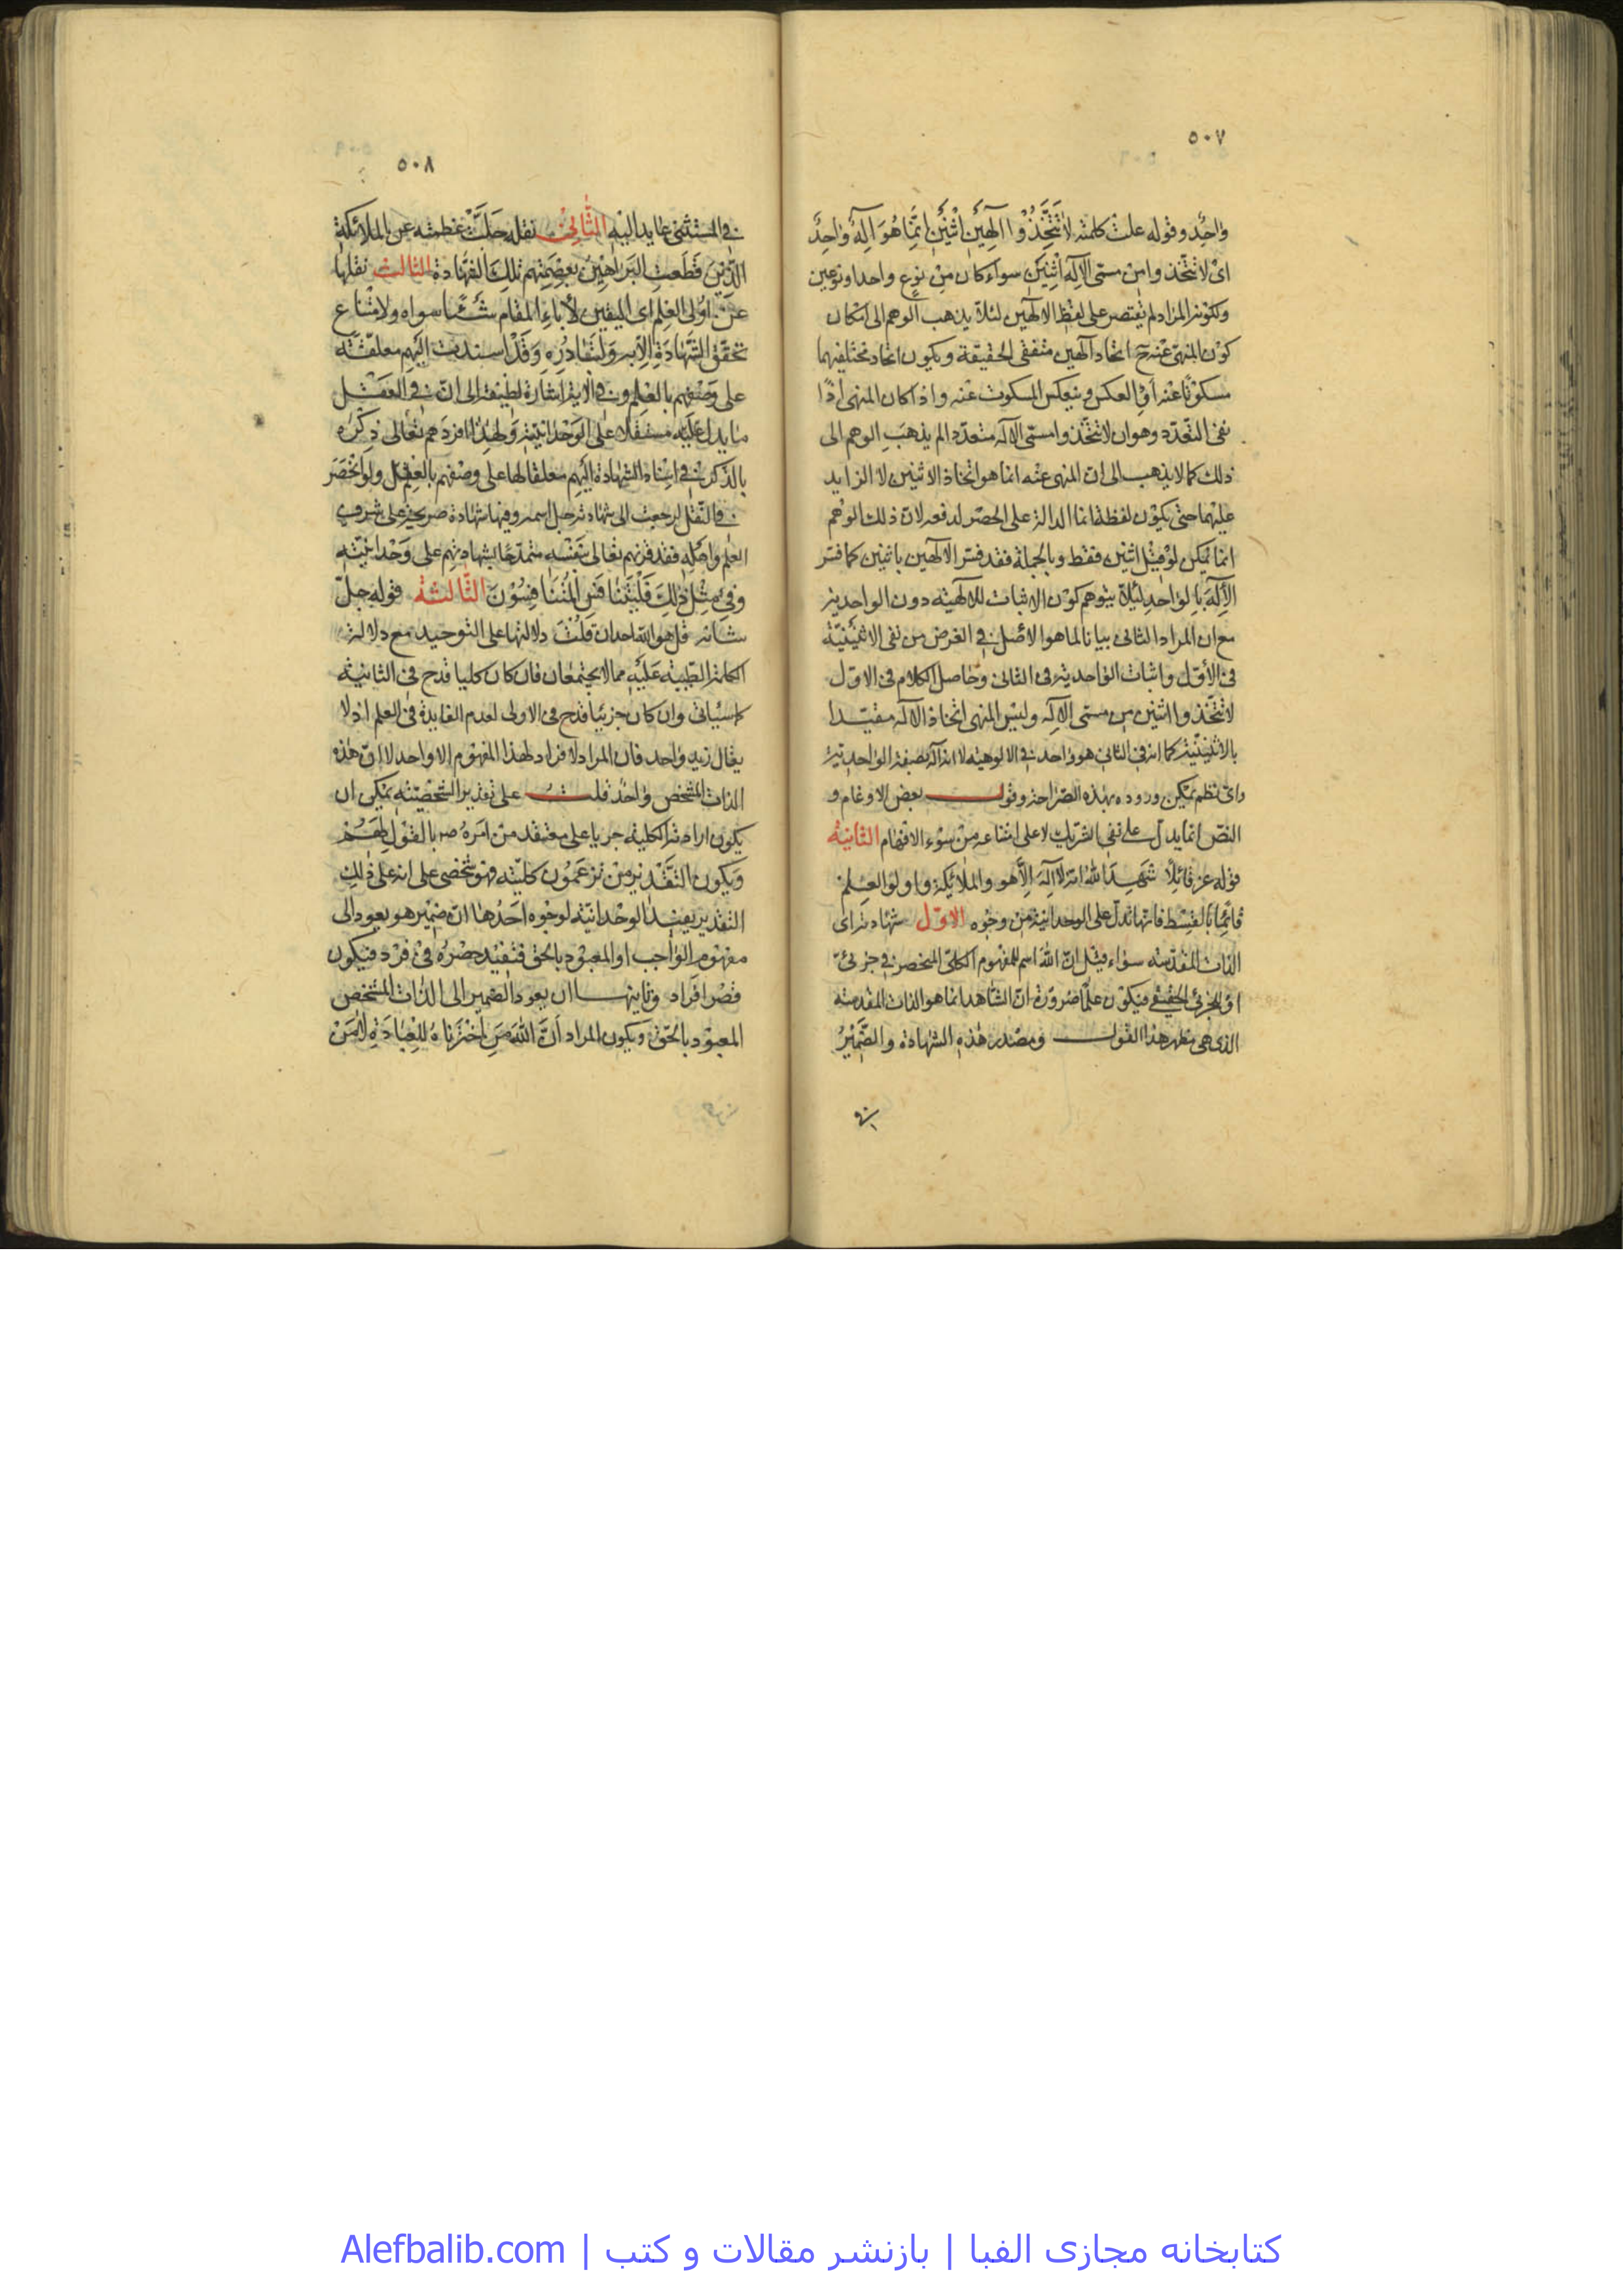 ٥٠٧
واحِدٌ وقوله علت كلمته لاتَتَّخِذُوا الٰهَيْنِ اثْنَيْنِ اِنَّمَا هُوَ اِلٰهٌ واحِدٌ
اى لا تتّخذوا من مسمّى الاله اثنين سواء كان من نوع واحد او نوعين
ولكونه المراد لم يقتصر على لفظ الالهين لئلا يذهب الوهم الى امكان
كون المنهىّ عنه ح اتحاد الهين متفقى الحقيقة ويكون اتحاد مختلفيهما
مسكوتا عنه او العكس وينعكس المسكوت عنه واذا كان المنهى اذًا
نفى التعدّد وهو ان لا تتّخذوا مسمّى الاله متعدّدا لم يذهب الوهم الى
ذلك كما لا يذهب الى ان المنهى عنه انما هو اتخاذ الاثنين لا الزايد
عليهما حتى يكون لفظة انما الدالة على الحصر لدفعه لان ذلك الوهم
انما يمكن لو قيل اثنين فقط وبالجملة فقد فسّر الالهين باثنين كما فسّر
الالٰه بالواحد لئلّا يتوهم كون الاثبات للالهيّة دون الواحدية
مع ان المراد الثانى بيانا لما هو الاصل فى الغرض من نفى الاثنينيّة
فى الاوّل واثبات الواحدية فى الثانى وحاصل الكلام فى الاوّل
لا تتّخذوا اثنين من مسمى الاله وليس المنهى اتخاذ الاله مقيّدا
بالاثنينيّة كما انه فى الثانى هو واحد فى الالوهيّة لا انه اله بصفة الواحدية
واىّ نظم يمكن وروده بهذه الصّراحة وقول بعض الاوغام و
النصّ انما يدلّ على نفى الشريك لا على امتناعه من سوء الافهام الثانية
قوله عز قائلًا شَهِدَ اللهُ انّه لا اِلٰهَ اِلّا هو والملائِكَة واولو العِلم
قائِمًا بالقِسْط فانها تدلّ على الوحدانية من وجوه الاوّل شهادته اى
الذات المقدّسة سواء قيل انّ الله اسم للمفهوم الكلّى المنحصر فى جزئىّ
او للجزئى الحقيقى فيكون علمًا ضرورة انّ الشاهد انما هو الذات المقدسة
الذى هى مظهر هذا القول ومصدر هذه الشهادة والضّميرُ
فى
٥٠٨
فى المستثنى عايد اليه الثّانى نقله جلّت عظمته عن الملائكة
الّذين قَطَعت البراهين بعصمتهم تلك الشهادة الثالث نقلها
عن اولى العلم اى اليقين لأباء المقام شيئا سواه ولامتناع
تحقّق الشّهادة الّا به ولتبادره وقد اسندت اليهم معلقة
على وصفهم بالعلم وفى الاية اشارة لطيفة الى انّ فى العقل
ما يدل عليه مستقلا على الوحدانيّة ولهذا افردهم تعالى ذكره
بالذكر فى اسناد الشهادة اليهم معلقا لها على وصفهم بالعلم ولو انحصر
فى النّقل لرجعت الى شهادته جلّ اسمه وفيها شهادة صريحة على شرف
العلم واهله فقد قرنهم تعالى بنفسه متمدّحًا بشهادتهم على وَحْدانيّته
وفى مِثلِ ذٰلِكَ فَلْيَتَنافَسِ المُتَنَافِسُوْنَ الثّالثة قوله جلّ
شانه قل هو الله احد ان قلت دلالتها على التوحيد مع دلالة
الكلمة الطّيبة عليه مما لا يجتمعان فان كان كليا قدح فى الثانية
كما سيأتى وان كان جزئيا قدح فى الاولى لعدم الفايدة فى العلم اذ لا
يقال زيد واحد فان المراد لا افراد لهذا المفهوم الا واحد لا انّ هذه
الذات المتشخص واحدٌ قلت على تقدير الشخصيّة يمكن ان
يكون ارادة الكلية جريا على معتقد من امره ص بالقول لهم
ويكون التقدير من تزعمون كليّته فهو شخصى على انه على ذلك
التقدير يفيد الوحدانيّة لوجوه احدُها انّ ضمير هو يعود الى
مفهوم الواجب او المعبود بالحق فتفيد حصره فى فرد فيكون
قصر افراد وثانيها ان يعود الضمير الى الذات المتشخص
المعبود بالحقّ ويكون المراد أنَّ الله مَن اخترناهُ للعِبادَةِ لا مَن
کتابخانه مجازی الفبا | بازنشر مقالات و کتب | Alefbalib.com